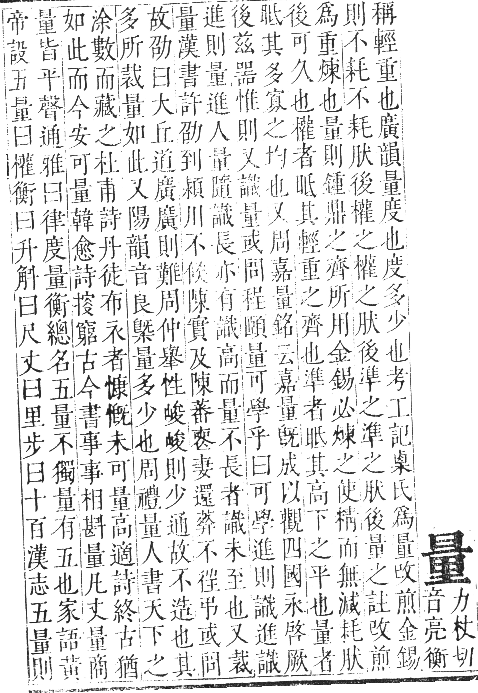 量 力杖切
音亮衡
稱輕重也廣韻量度也度多少也考工記㮚氏爲量攺煎金錫
則不耗不耗肰後權之權之肰後準之準之肰後量之註攺煎
爲重煉也量則鍾鼎之齊所用金錫必煉之使精而無減耗肰
後可久也權者眡其輕重之齊也準者眡其高下之平也量者
眡其多寡之均也又周嘉量銘云嘉量旣成以觀四國永啓厥
後兹器惟則又識量或問程頤量可學乎曰可學進則識進識
進則量進人量隨識長亦有識高而量不長者識未至也又裁
量漢書許劭到潁川不候陳實及陳蕃䘮妻還葬不徃弔或問
故劭曰大丘道廣廣則難周仲舉性峻峻則少通故不造也其
多所裁量如此又陽韻音良槩量多少也周禮量人書天下之
涂數而藏之杜甫詩丹徒布衣者慷慨未可量高適詩終古猶
如此而今安可量韓愈詩搜窮古今書事事相斟量凡丈量商
量皆平聲通雅曰律度量衡總名五量不獨量有五也家語黃
帝設五量曰權衡曰升斛曰尺丈曰里步曰十百漢志五量則